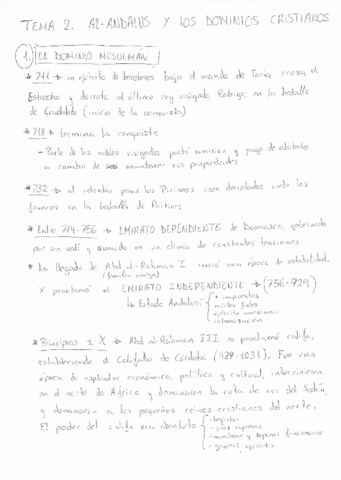 TEMA 2. AL-ANDALUS Y LOS DOMINIOS CRISTIANOS
1. EL DOMINIO MUSULMÁN
* 711 → un ejército de bereberes bajo el mando de Tariq cruza el
Estrecho y derrota al último rey visigodo, Rodrigo, en la batalla
de Guadalete (inicio de la conquista)
* 718 → termina la conquista
- Parte de los nobles visigodos pactó sumisión y pago de tributo
a cambio de mantener sus propiedades
* 732 → al intentar pasar los Pirineos caen derrotados ante los
francos en la batalla de Poitiers
* Entre 714-756 → EMIRATO DEPENDIENTE de Damasco, gobernado
por un valí y sumido en un clima de constantes tensiones
* La llegada de Abd al-Rahman I inició una época de estabilidad.
(familia omeya)
Y proclamó el EMIRATO INDEPENDIENTE → (756-929)
↳ Estado Andalusí
impuestos
ejército
* Principios s. X → Abd al-Rahman III se proclamó califa,
estableciendo el Califato de Córdoba (929-1031). Fue una
época de esplendor económico, político y cultural, intervinieron
en el norte de África y dominaron la ruta de oro del Sudán,
y dominaron a los pequeños reinos cristianos del norte.
El poder del califa era absoluto
- legislar
- juez supremo
- nombrar y deponer funcionarios
- general ejércitos